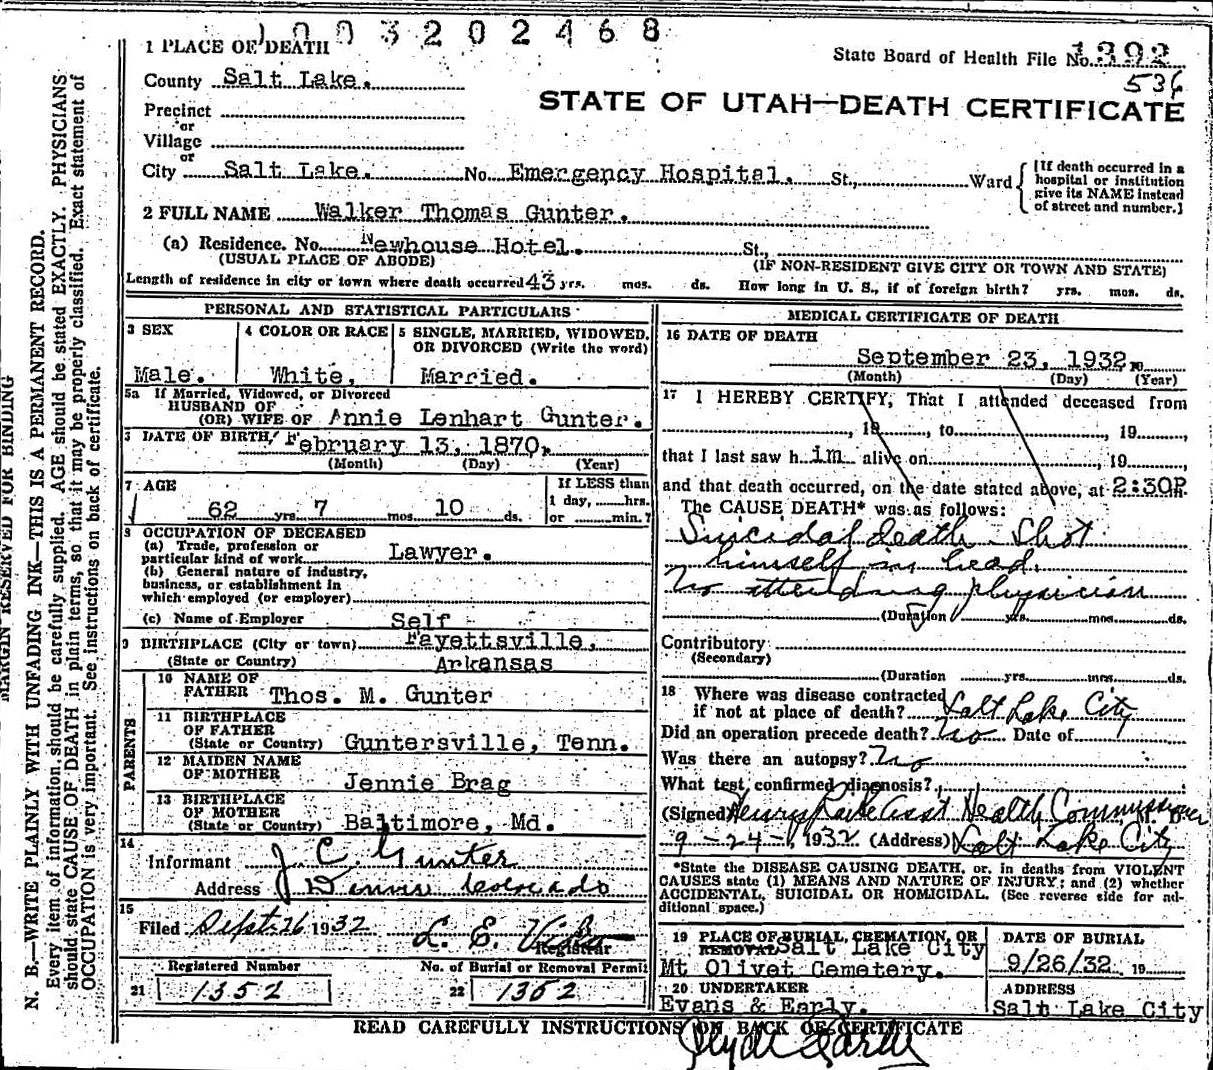 1003202468
1 PLACE OF DEATH
State Board of Health File No. 1392
536
County Salt Lake.
STATE OF UTAH—DEATH CERTIFICATE
Precinct
or
Village
or
City Salt Lake. No. Emergency Hospital. St., Ward
[If death occurred in a
hospital or institution
give its NAME instead
of street and number.]
2 FULL NAME Walker Thomas Gunter.
(a) Residence. No. Newhouse Hotel. St.,
(USUAL PLACE OF ABODE) (IF NON-RESIDENT GIVE CITY OR TOWN AND STATE)
Length of residence in city or town where death occurred 43 yrs. mos. ds. How long in U. S., if of foreign birth? yrs. mos. ds.
PERSONAL AND STATISTICAL PARTICULARS
3 SEX
Male.
4 COLOR OR RACE
White,
5 SINGLE, MARRIED, WIDOWED,
OR DIVORCED (Write the word)
Married.
5a If Married, Widowed, or Divorced
HUSBAND OF
(OR) WIFE OF Annie Lenhart Gunter.
DATE OF BIRTH, February 13, 1870.
(Month) (Day) (Year)
7 AGE
62 yrs. 7 mos. 10 ds.
If LESS than
1 day, hrs.
or min.?
8 OCCUPATION OF DECEASED
(a) Trade, profession or
particular kind of work Lawyer.
(b) General nature of industry,
business, or establishment in
which employed (or employer)
(c) Name of Employer Self
9 BIRTHPLACE (City or town) Fayettsville,
(State or Country) Arkansas
PARENTS
10 NAME OF
FATHER Thos. M. Gunter
11 BIRTHPLACE
OF FATHER
(State or Country) Guntersville, Tenn.
12 MAIDEN NAME
OF MOTHER
Jennie Brag
13 BIRTHPLACE
OF MOTHER
(State or Country) Baltimore, Md.
14
Informant J. C. Gunter
Address Denver Colorado
15
Filed Sept. 26 1932 L. E.
Registrar
Registered Number
21 1352
No. of Burial or Removal Permit
22 1352
MEDICAL CERTIFICATE OF DEATH
16 DATE OF DEATH
September 23, 1932.
(Month) (Day) (Year)
17 I HEREBY CERTIFY, That I attended deceased from
, 19 , to , 19
that I last saw him alive on , 19
and that death occurred, on the date stated above, at 2:30P m.
The CAUSE DEATH* was as follows:
Suicidal death - Shot
himself in head.
No attending physician
(Duration yrs. mos. ds.
Contributory
(Secondary)
(Duration yrs. mos. ds.
18 Where was disease contracted
if not at place of death? Salt Lake City
Did an operation precede death? No Date of
Was there an autopsy? No
What test confirmed diagnosis?
(Signed) Henry Asst Health Commissioner M. D.
9-24-, 1932 (Address) Salt Lake City
*State the DISEASE CAUSING DEATH, or, in deaths from VIOLENT
CAUSES state (1) MEANS AND NATURE OF INJURY; and (2) whether
ACCIDENTAL, SUICIDAL OR HOMICIDAL. (See reverse side for ad-
ditional space.)
19 PLACE OF BURIAL, CREMATION, OR
REMOVAL Salt Lake City
Mt Olivet Cemetery.
DATE OF BURIAL
9/26/32 19
20 UNDERTAKER
Evans & Early.
ADDRESS
Salt Lake City
READ CAREFULLY INSTRUCTIONS ON BACK OF CERTIFICATE
MARGIN RESERVED FOR BINDING
N. B.—WRITE PLAINLY WITH UNFADING INK—THIS IS A PERMANENT RECORD.
Every item of information should be carefully supplied. AGE should be stated EXACTLY. PHYSICIANS
should state CAUSE OF DEATH in plain terms, so that it may be properly classified. Exact statement of
OCCUPATION is very important. See instructions on back of certificate.